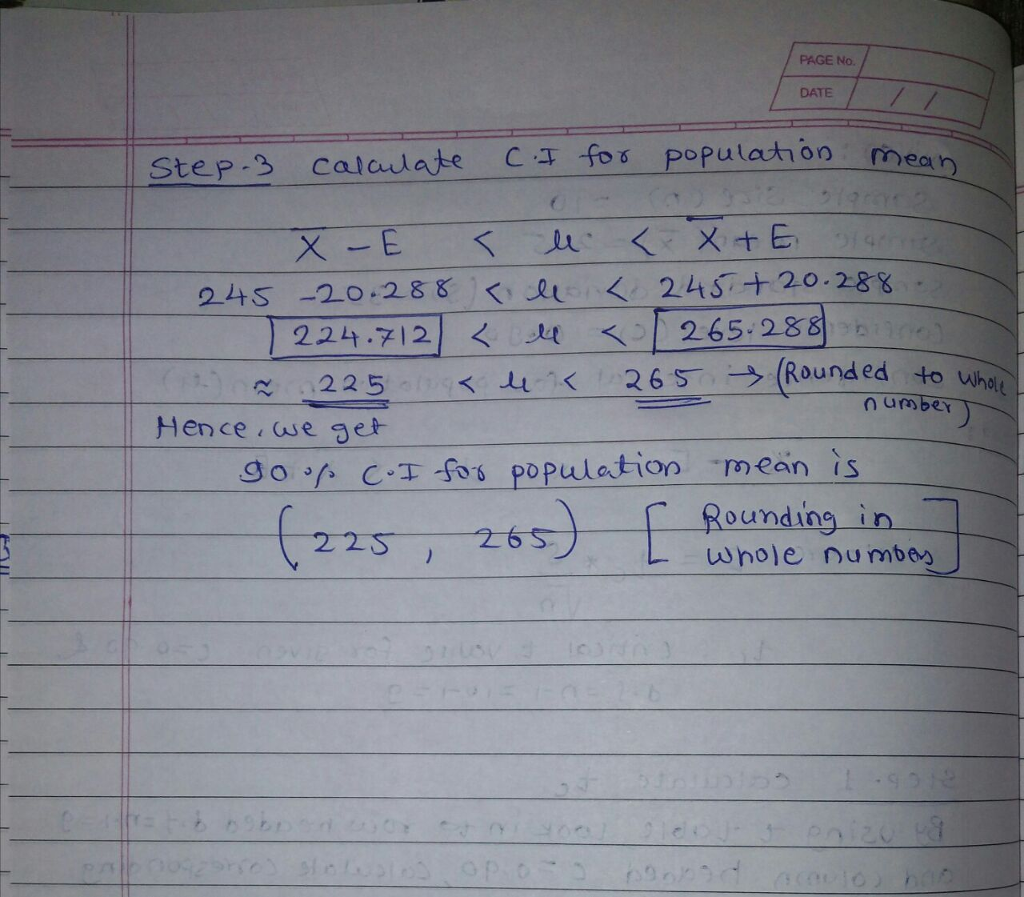 PAGE No.
DATE / /
Step-3 Calculate C.I for population mean
X̅ - E < μ < X̅ + E
245 - 20.288 < μ < 245 + 20.288
224.712 < μ < 265.288
≈ 225 < μ < 265 → (Rounded to whole number)
Hence, we get
90 % C.I for population mean is
(225, 265) [Rounding in whole numbers]